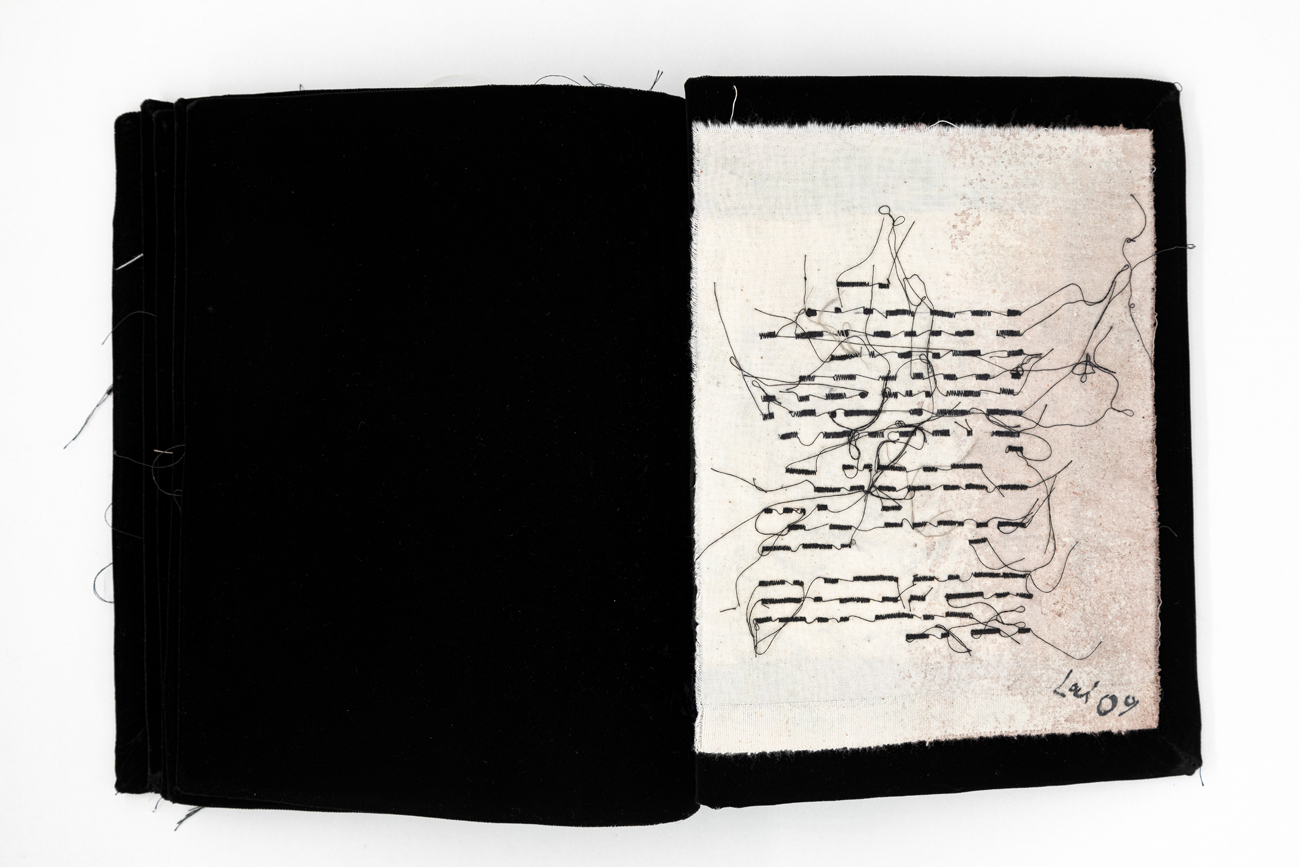 Lai 09